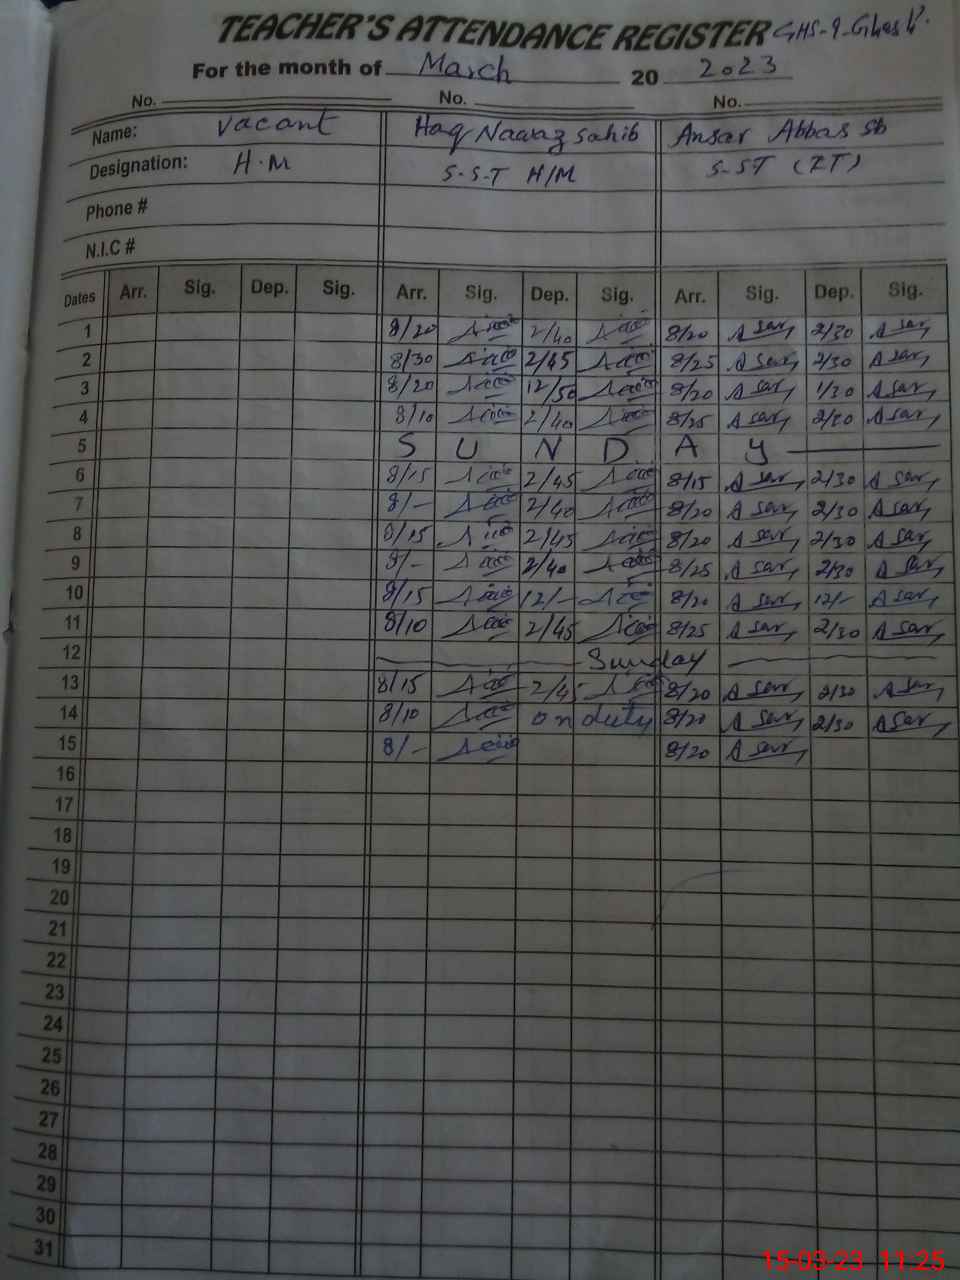 TEACHER'S ATTENDANCE REGISTER GHS-9-
For the month of March 20 2023
No. No. No.
Name: Vacant Haq Nawaz Sahib Ansar Abbas sb
Designation: H.M S.S.T H/M S-ST (IT)
Phone #
N.I.C #
Dates Arr. Sig. Dep. Sig. Arr. Sig. Dep. Sig. Arr. Sig. Dep. Sig.
1 8/20 2/40 8/20 Asar 2/30 Asar
2 8/30 2/45 8/25 Asar 2/30 Asar
3 8/20 12/50 8/20 Asar 1/30 Asar
4 8/10 2/40 8/25 Asar 2/30 Asar
5 S U N D A y
6 8/15 2/45 8/15 Asar 2/30 Asar
7 8/- 2/40 8/20 Asar 2/30 Asar
8 8/15 2/45 8/20 Asar 2/30 Asar
9 8/- 2/40 8/25 Asar 2/30 Asar
10 8/15 12/- 8/20 Asar 12/- Asar
11 8/10 2/45 8/25 Asar 2/30 Asar
12 Sunday
13 8/15 2/45 8/20 Asar 2/30 Asar
14 8/10 on duty 8/20 Asar 2/30 Asar
15 8/- 8/20 Asar
16
17
18
19
20
21
22
23
24
25
26
27
28
29
30
31
15-03-23 11:25